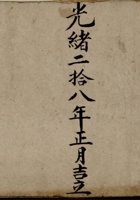 光緒二拾八年正月吉立